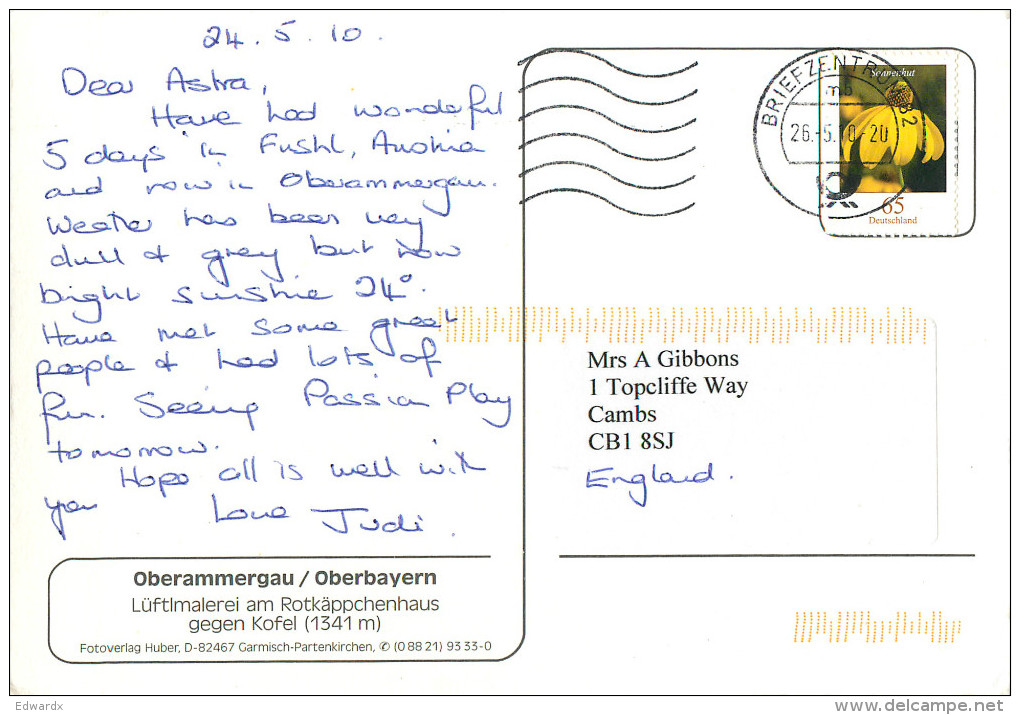 24.5.10.
Dear Astra,
Have had wonderful
5 days in Fushl, Austria
and now in Oberammergau.
Weather has been very
dull & grey but now
bright sunshine 24°.
Have met some great
people & had lots of
fun. Seeing Passion Play
tomorrow.
Hope all is well with
you Love Judi.
Oberammergau / Oberbayern
Lüftlmalerei am Rotkäppchenhaus
gegen Kofel (1341 m)
Fotoverlag Huber, D-82467 Garmisch-Partenkirchen, ✆ (0 88 21) 93 33-0
BRIEFZENTRUM 82
mb
26.-5.10-20
Sonnenhut
65
Deutschland
Mrs A Gibbons
1 Topcliffe Way
Cambs
CB1 8SJ
England.
Edwardx
www.delcampe.net